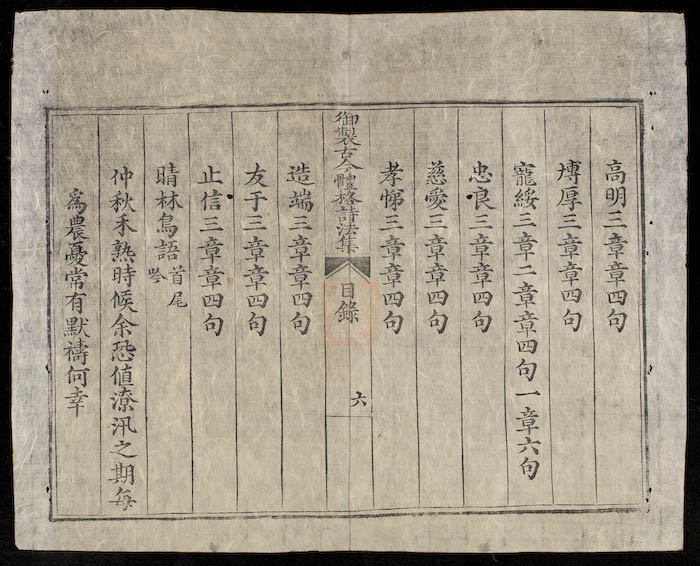 高明三章章四句
博厚三章章四句
寵綏三章二章章四句一章六句
忠良三章章四句
慈愛三章章四句
孝悌三章章四句
御製古今體格詩法集
目錄
六
造端三章章四句
友于三章章四句
止信三章章四句
晴林鳥語首尾吟
仲秋禾熟時候余恐值潦汛之期每
爲農憂常有默禱何幸